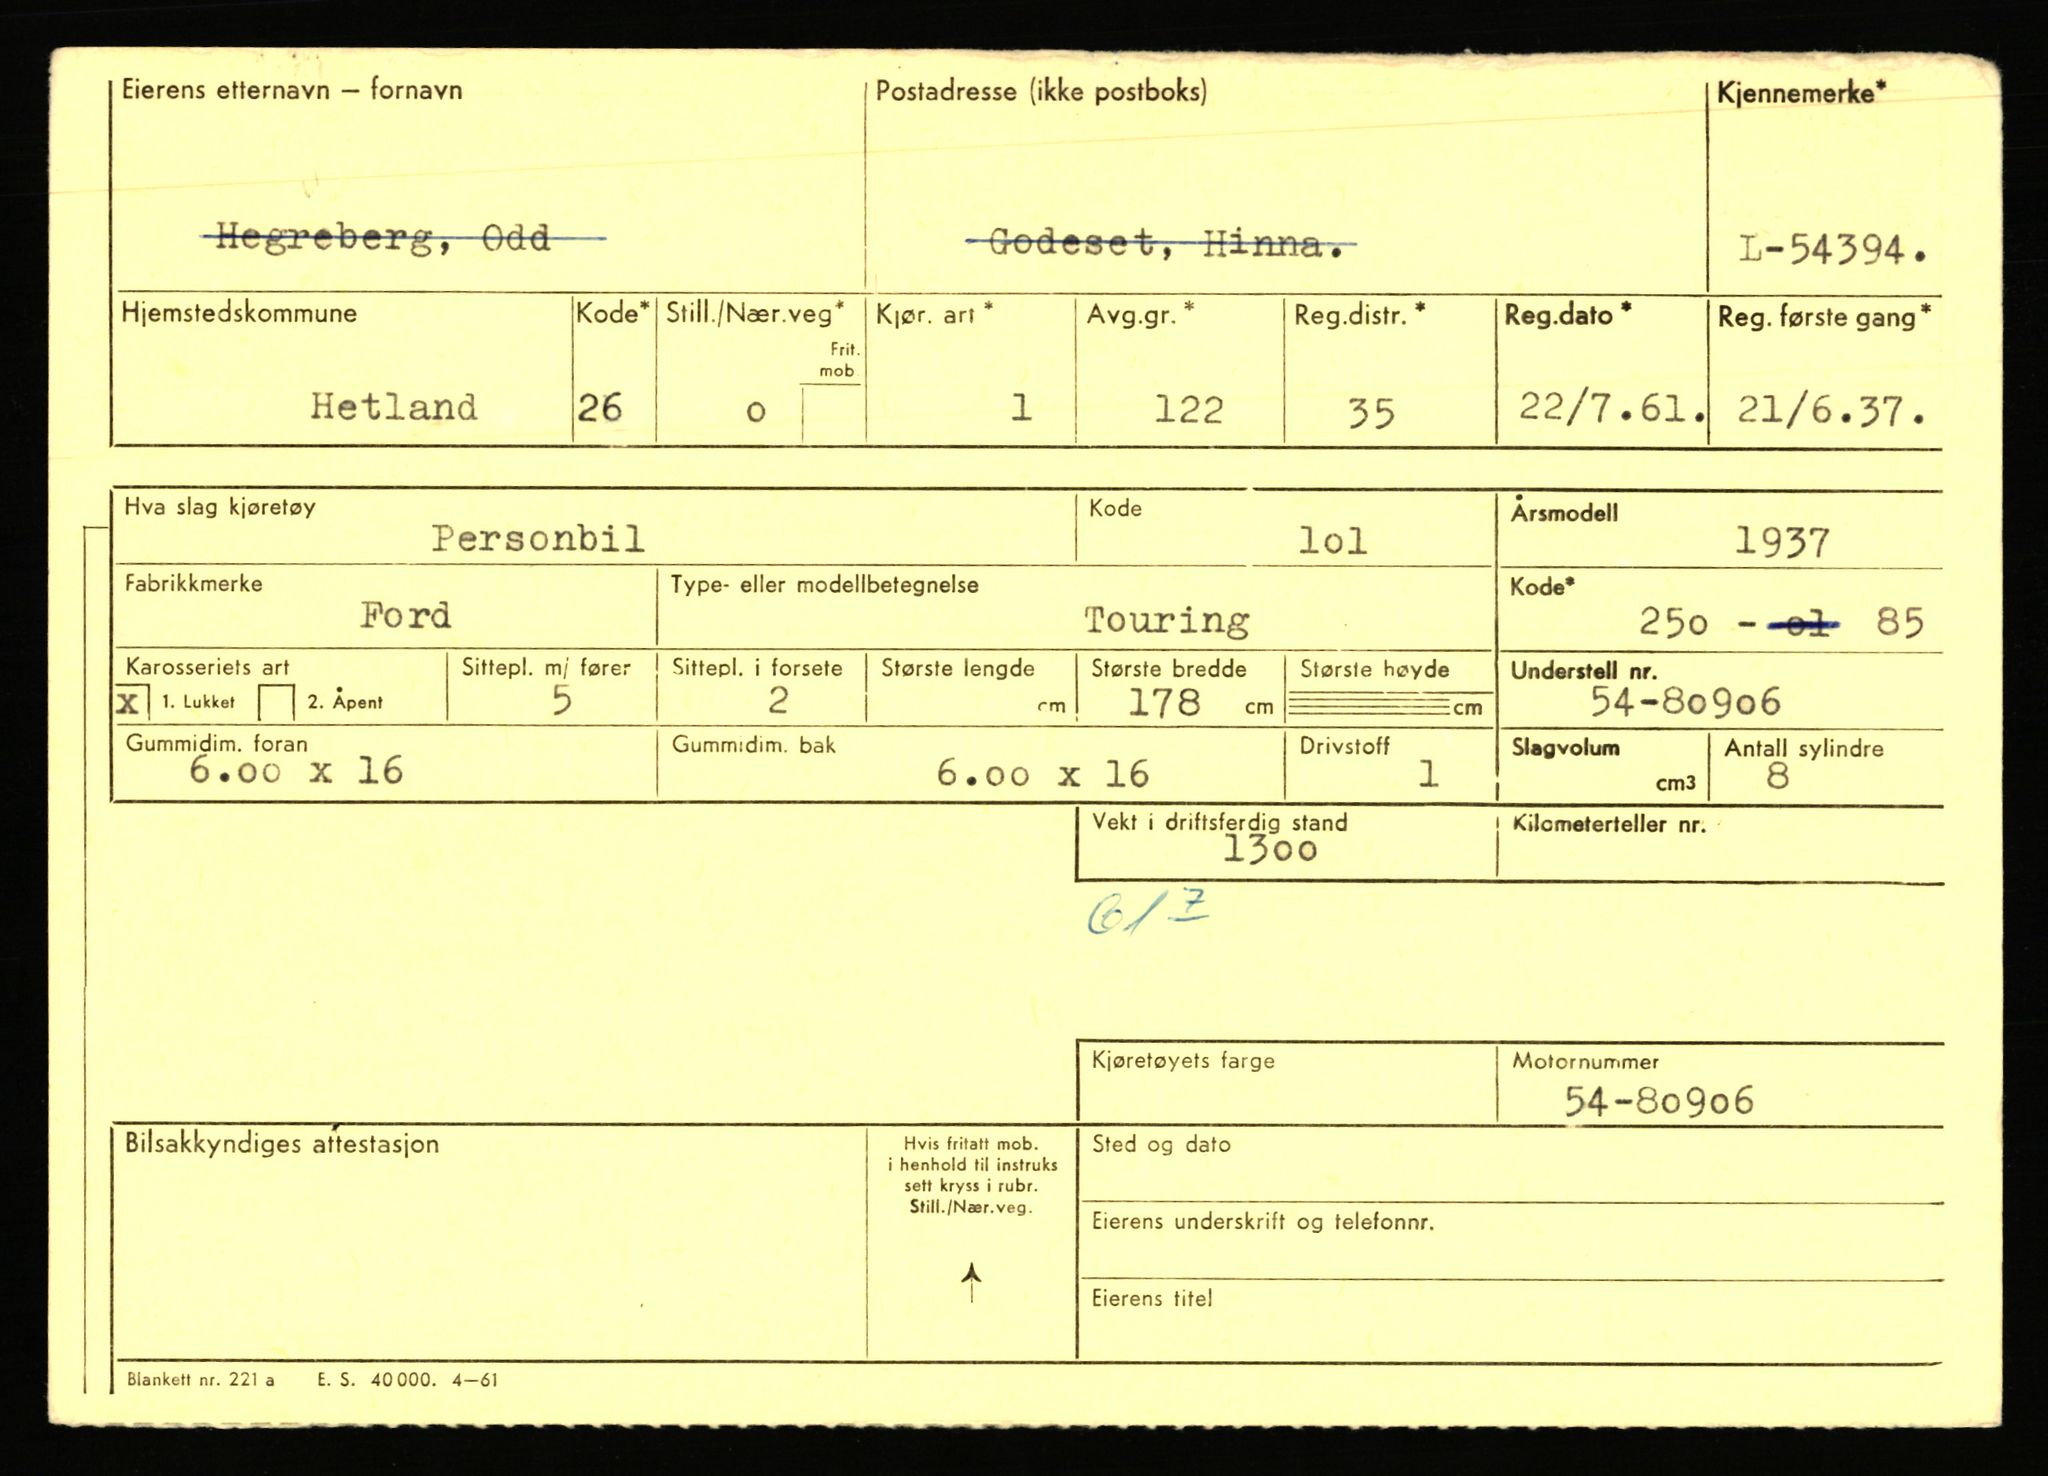 Eierens etternavn – fornavn Postadresse (ikke postboks) Kjennemerke*
Hegreberg, Odd Godeset, Hinna. L-54394.
Hjemstedskommune Kode* Still./Nær.veg* Kjør. art* Avg.gr.* Reg.distr.* Reg.dato* Reg. første gang*
Frit.
mob.
Hetland 26 o 1 122 35 22/7.61. 21/6.37.
Hva slag kjøretøy Kode Årsmodell
Personbil lol 1937
Fabrikkmerke Type- eller modellbetegnelse Kode*
Ford Touring 25o - ol 85
Karosseriets art Sittepl. m/ fører Sittepl. i forsete Største lengde Største bredde Største høyde Understell nr.
x 1. Lukket 2. Åpent 5 2 cm 178 cm cm 54-80906
Gummidim. foran Gummidim. bak Drivstoff Slagvolum Antall sylindre
6.oo x 16 6.oo x 16 1 cm3 8
Vekt i driftsferdig stand Kilometerteller nr.
13oo
61 7
Kjøretøyets farge Motornummer
54-80906
Bilsakkyndiges attestasjon Hvis fritatt mob. Sted og dato
i henhold til instruks
sett kryss i rubr.
Still./Nær.veg.
Eierens underskrift og telefonnr.
Eierens titel
Blankett nr. 221 a E. S. 40 000. 4–61